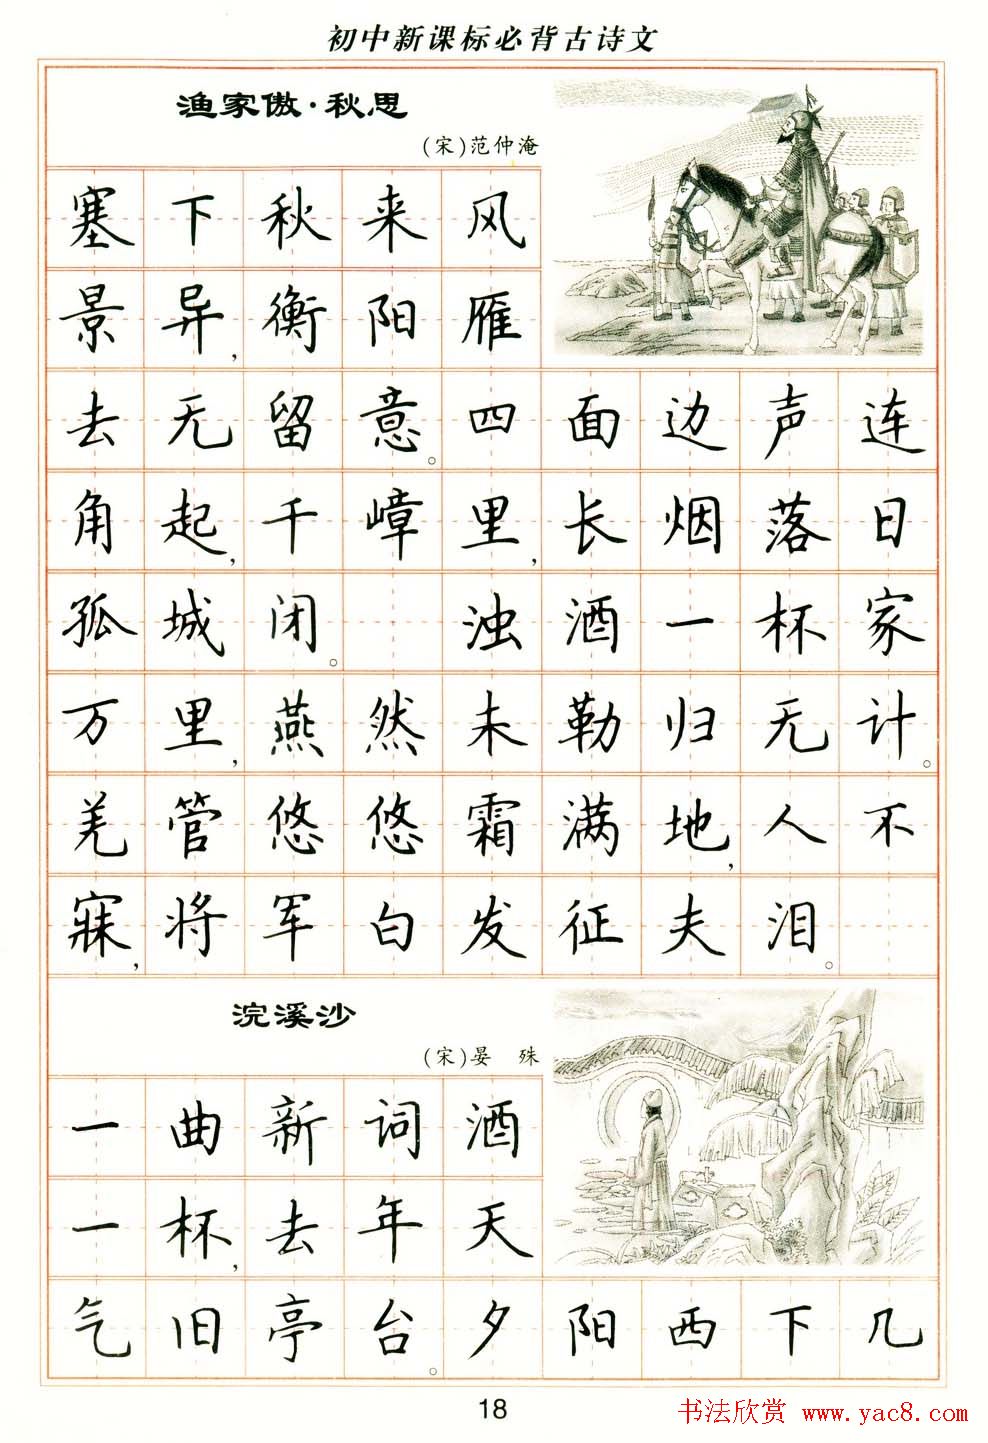 初中新课标必背古诗文
渔家傲·秋思
(宋)范仲淹
塞下秋来风
景异,衡阳雁
去无留意。四面边声连
角起,千嶂里,长烟落日
孤城闭。 浊酒一杯家
万里,燕然未勒归无计。
羌管悠悠霜满地,人不
寐,将军白发征夫泪。
浣溪沙
(宋)晏 殊
一曲新词酒
一杯,去年天
气旧亭台。夕阳西下几
18
书法欣赏 www.yac8.com